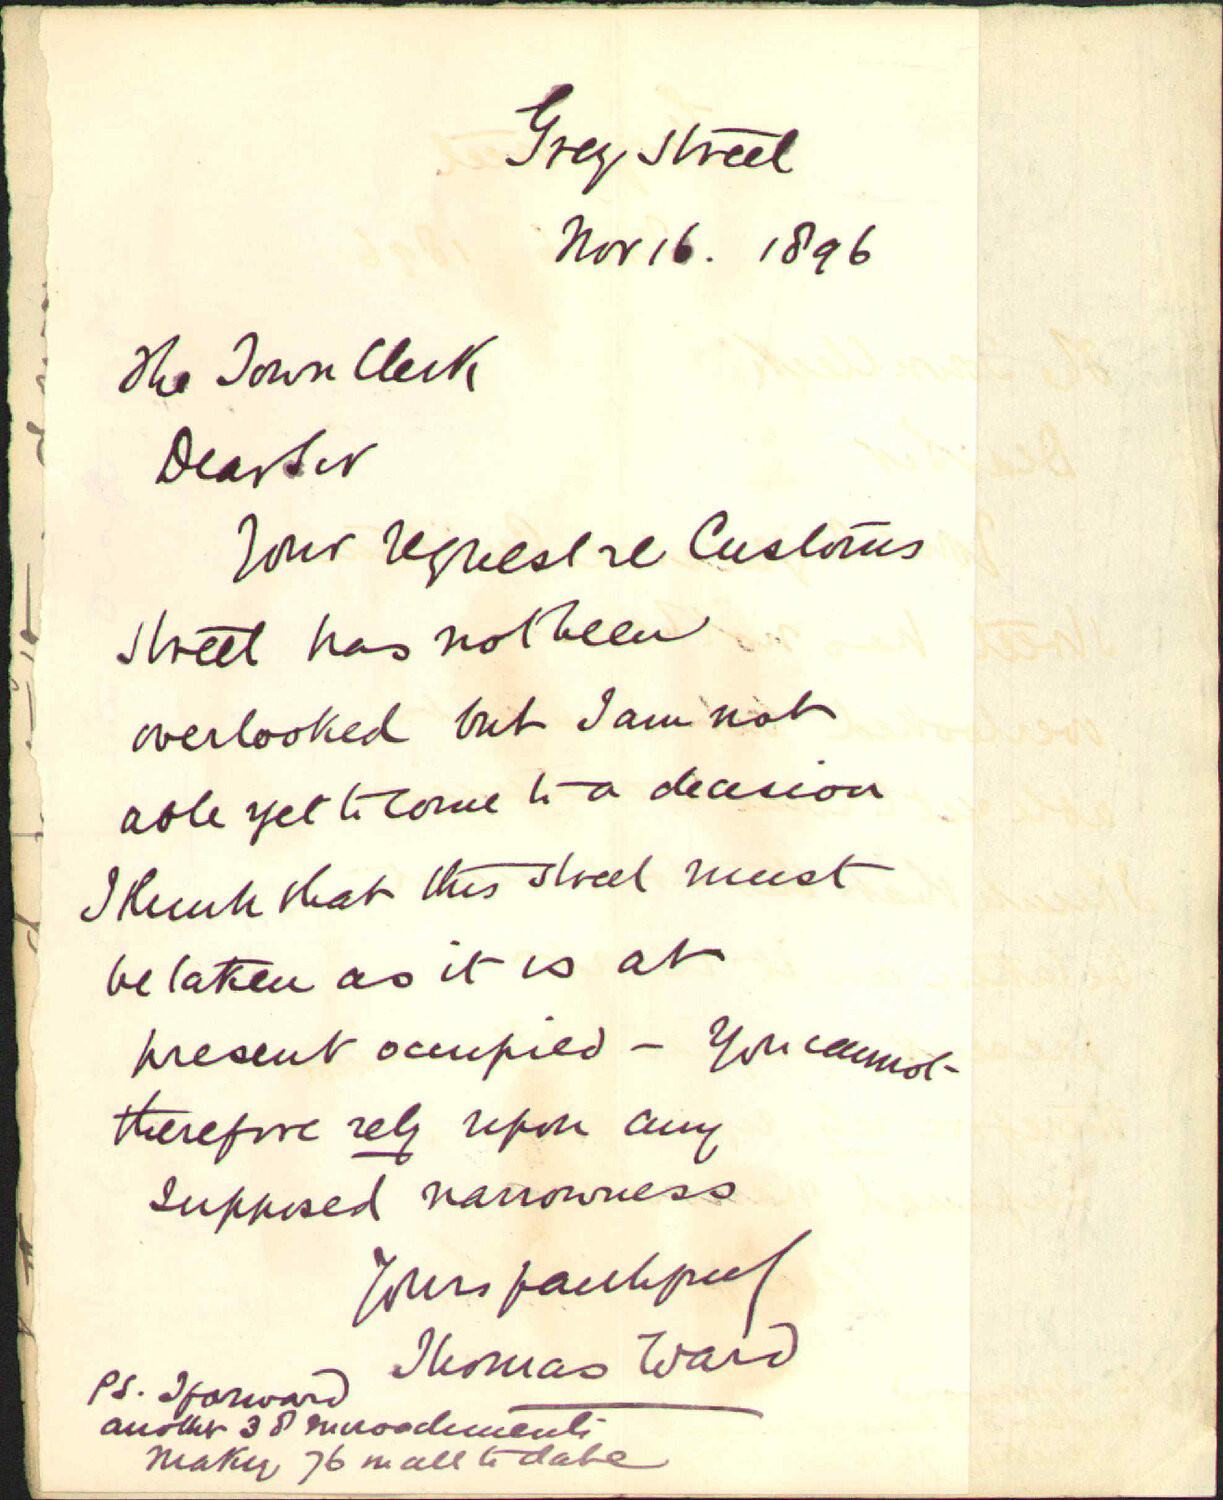 Grey Street
Nov 16. 1896
The Town Clerk
Dear Sir
Your request re Customs
Street has not been
overlooked but I am not
able yet to come to a decision
I think that this street must
be taken as it is at
present occupied - You cannot
therefore rely upon any
supposed narrowness
Yours faithfully
Thomas Ward
PS. I forward
another 38 encroachments
making 76 in all to date